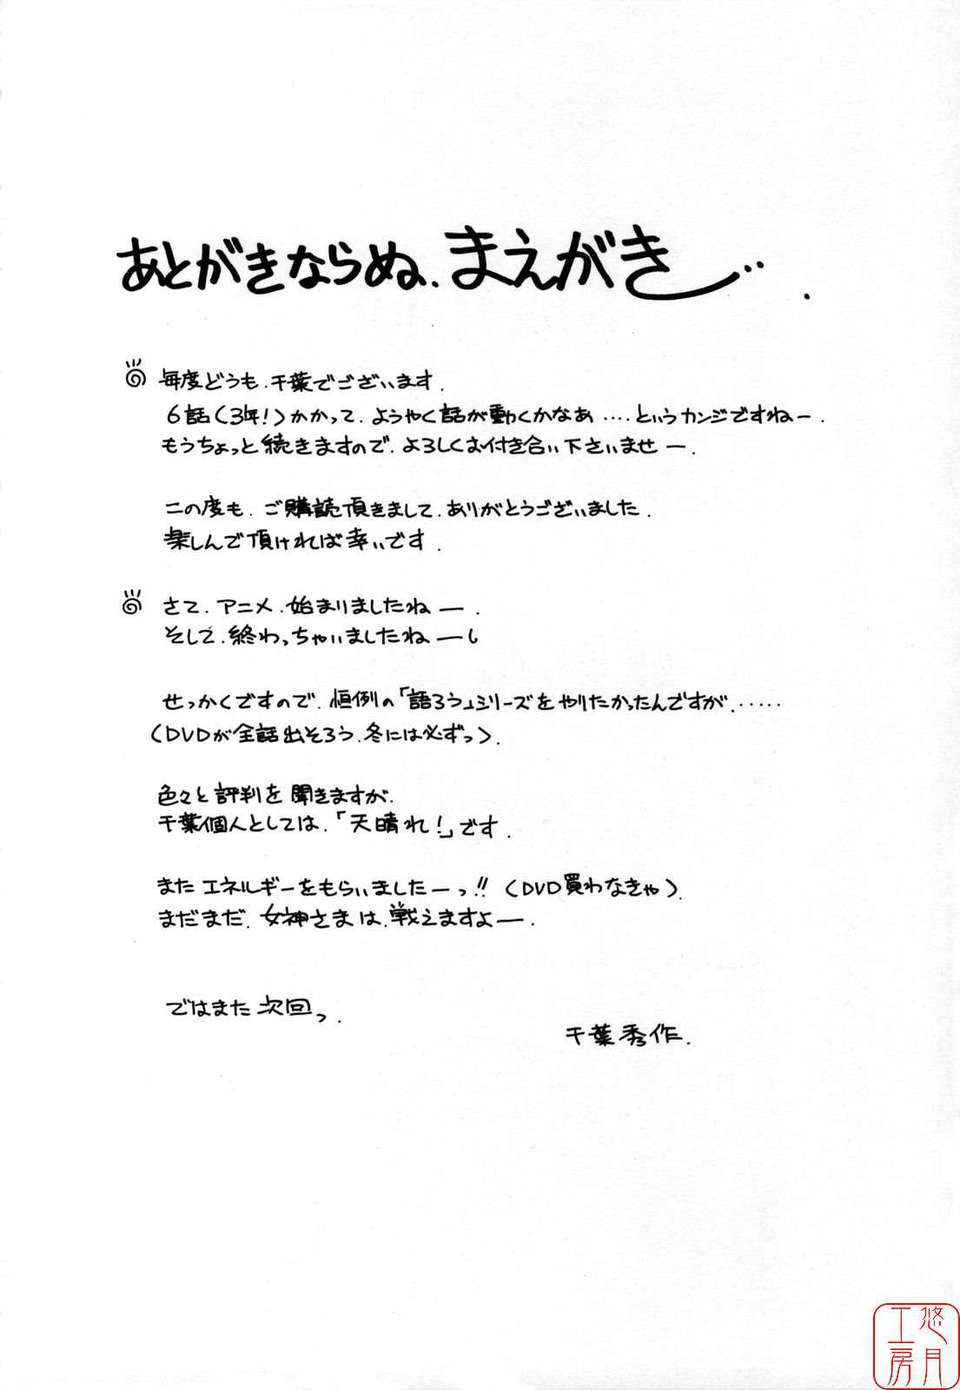 あとがきならぬ、まえがき…
毎度どうも、千葉でございます.
6話(3年!)かかって、ようやく話が動くかなあ‥‥というカンジですねー.
もうちょっと続きますので、よろしくお付き合い下さいませー.
この度も、ご購読頂きまして、ありがとうございました.
楽しんで頂ければ幸いです.
さて、アニメ、始まりましたねー.
そして、終わっちゃいましたねー。
せっかくですので、恒例の「語ろう」シリーズをやりたかったんですが、‥‥‥
(DVDが全話出そろう、冬には必ずっ).
色々と評判を聞きますが、
千葉個人としては、「天晴れ!」です.
またエネルギーをもらいましたーっ!!(DVD買わなきゃ).
まだまだ、女神さまは、戦えますよー.
ではまた次回っ.
千葉秀作.
悠月工房